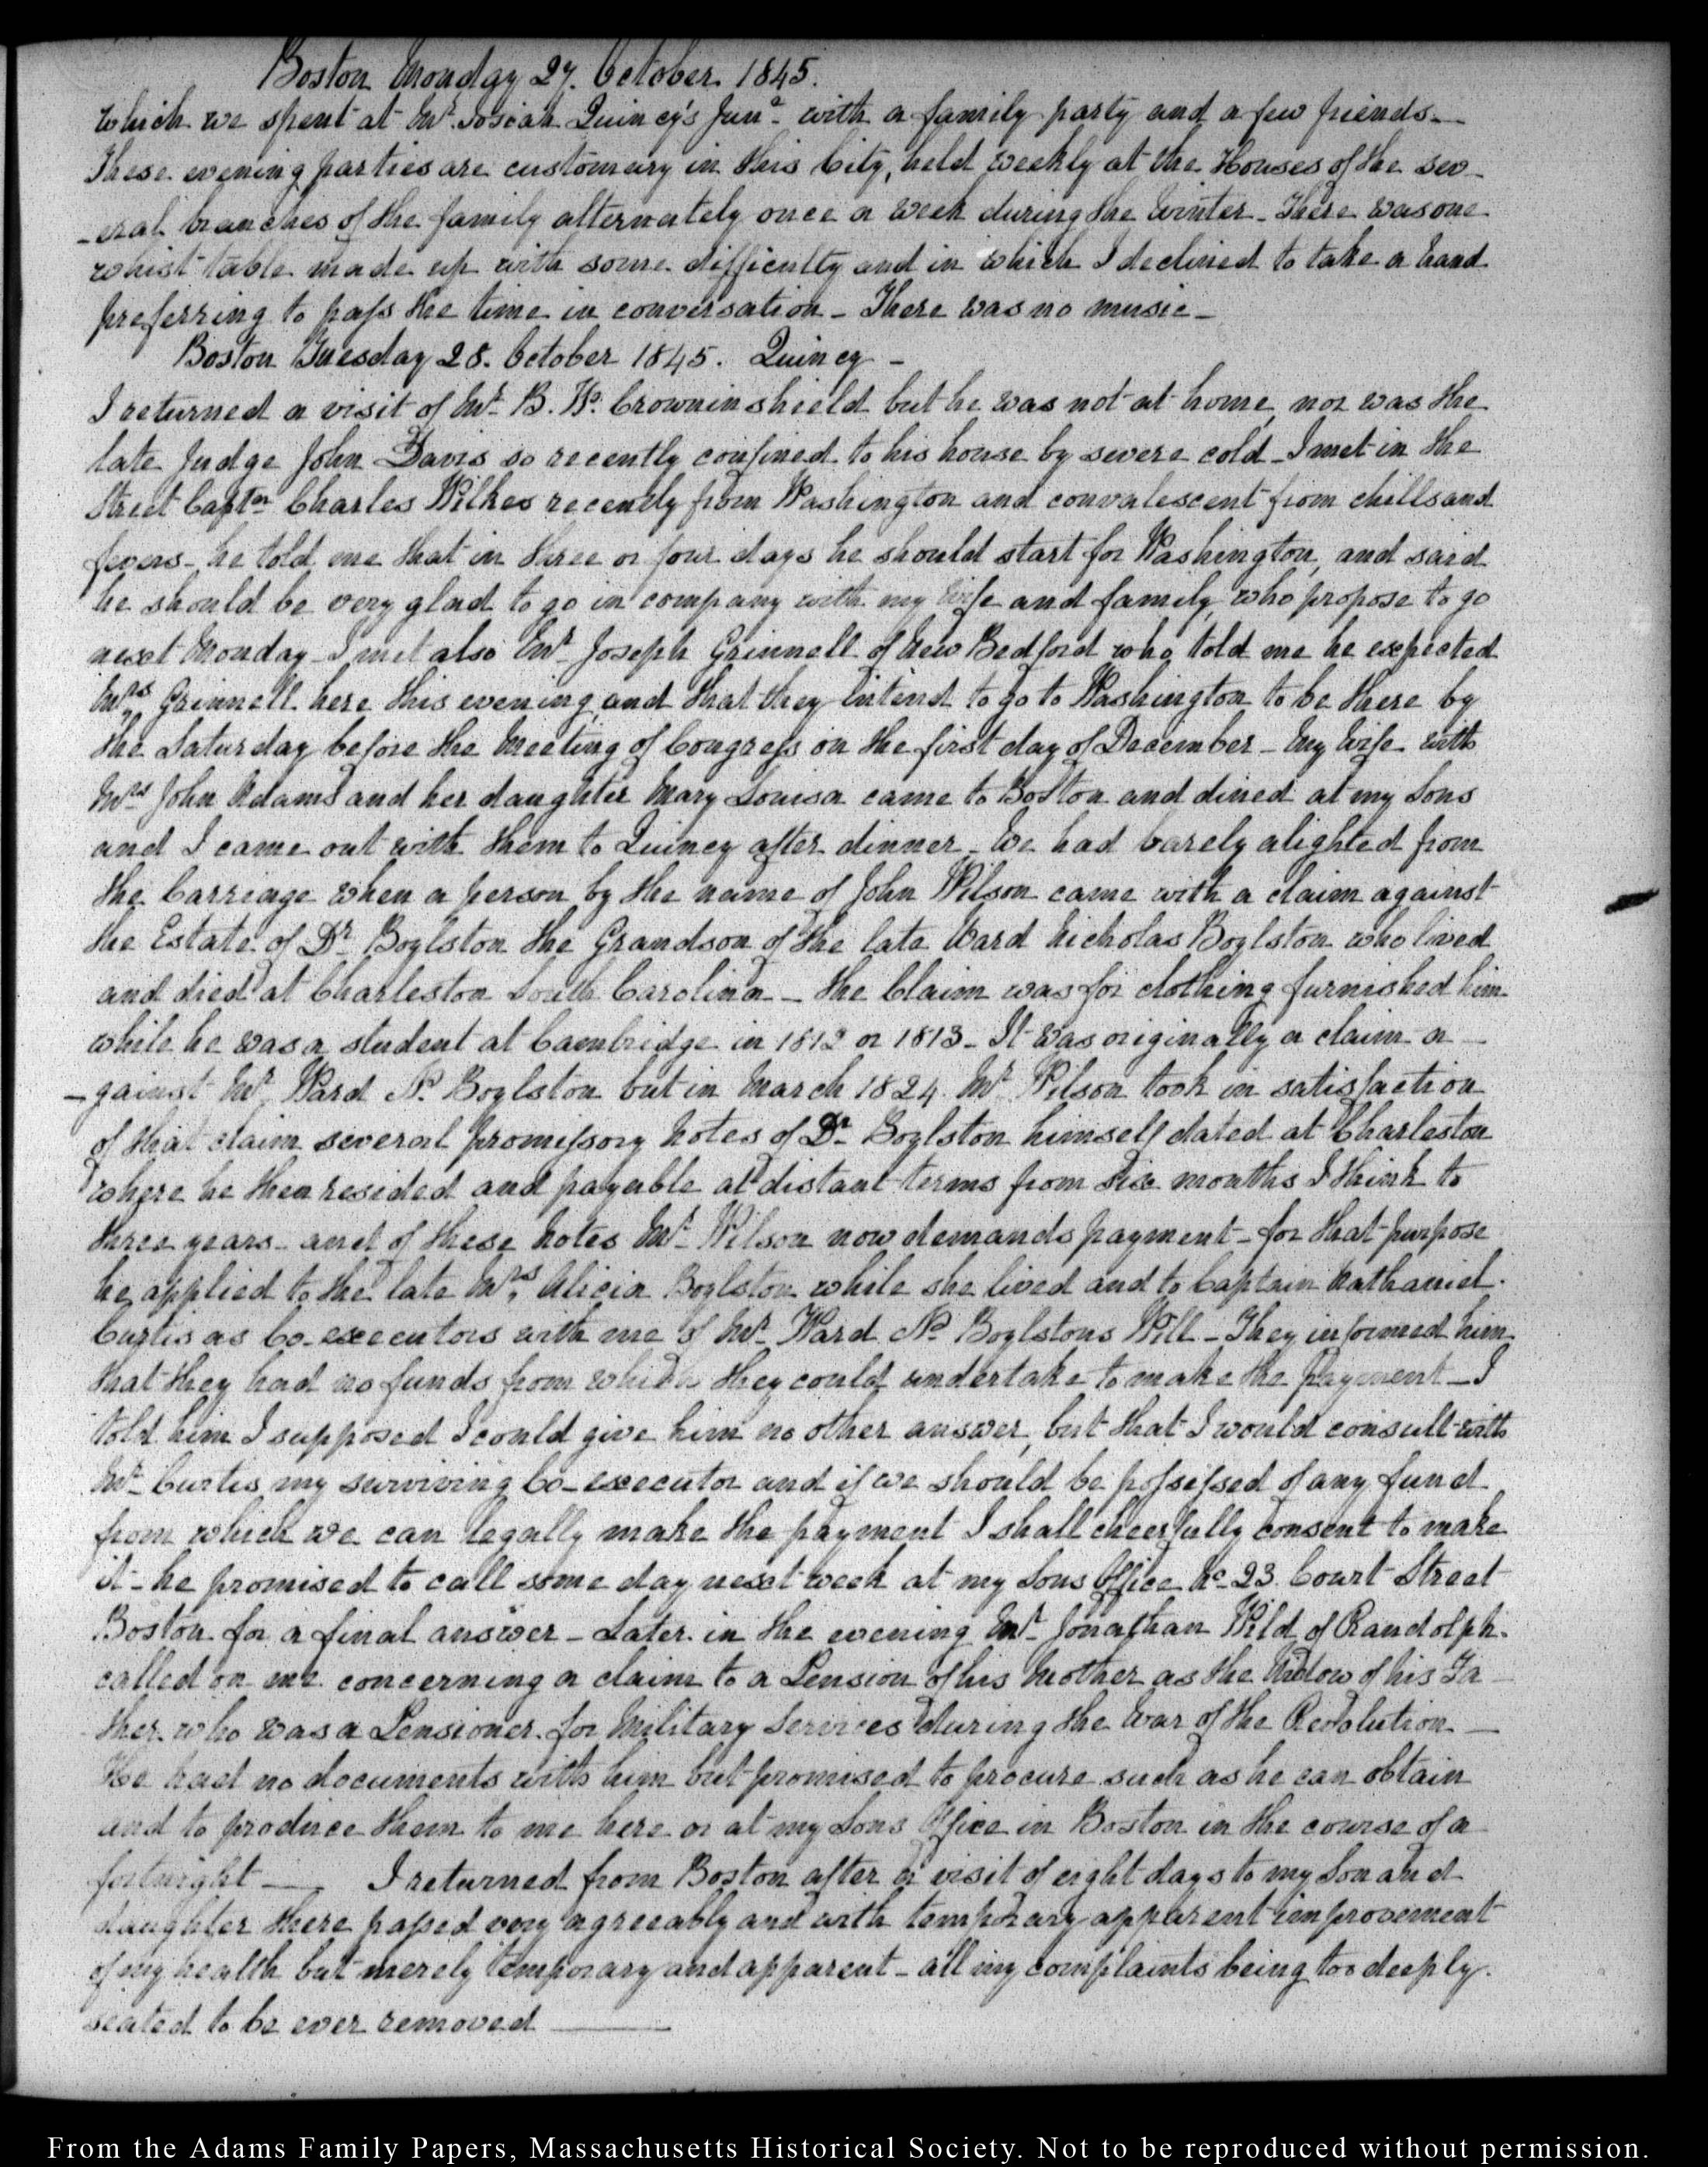 Boston Monday 27. October 1845.
which we spent at Mr. Josiah Quincy's Junr. with a family party and a few friends—
These evening parties are customary in this City, held weekly at the Houses of the sev-
-eral branches of the family alternately once a week during the Winter- There was one
whist table made up with some difficulty and in which I declined to take a hand
preferring to pass the time in conversation- There was no music-
Boston Tuesday 28. October 1845. Quincy -
I returned a visit of Mr. B. W. Crowninshield but he was not at home, nor was the
late Judge John Davis so recently confined to his house by severe cold- I met in the
Street Captn. Charles Wilkes recently from Washington and convalescent from chills and
fevers- he told me that in three or four days he should start for Washington, and said
he should be very glad to go in company with my wife and family, who propose to go
next Monday- I met also Mr. Joseph Grinnell of New Bedford who told me he expected
Mrs. Grinnell here this evening, and that they intend to go to Washington to be there by
the Saturday before the Meeting of Congress on the first day of December- My Wife with
Mrs. John Adams and her daughter Mary Louisa came to Boston and dined at my Sons
and I came out with them to Quincy after dinner- We had barely alighted from
the Carriage when a person by the name of John Wilson came with a claim against
the Estate of Dr. Boylston the Grandson of the late Ward Nicholas Boylston who lived
and died at Charleston South Carolina- the Claim was for clothing furnished him
while he was a student at Cambridge in 1812 or 1813- It was originally a claim a
-gainst Mr. Ward N. Boylston but in March 1824 Mr. Wilson took in satisfaction
of that claim several promissory Notes of Dr. Boylston himself dated at Charleston
where he then resided and payable at distant terms from six months I think to
three years- and of these Notes Mr. Wilson now demands payment- for that purpose
he applied to the late Mrs. Alicia Boylston while she lived and to Captain Nathaniel
Curtis as Co-executors with me of Mr. Ward N. Boylstons Will- They informed him
that they had no funds from which they could undertake to make the Payment- I
told him I supposed I could give him no other answer, but that I would consult with
Mr. Curtis my surviving Co-executor and if we should be possessed of any fund
from which we can legally make the payment I shall cheerfully consent to make
it- he promised to call some day next week at my Sons Office No. 23. Court Street
Boston for a final answer- Later in the evening Mr. Jonathan Wild of Randolph
called on me concerning a claim to a Pension of his Mother as the Widow of his Fa-
ther who was a Pensioner for Military Services during the War of the Revolution—
He had no documents with him but promised to procure such as he can obtain
and to produce them to me here or at my Sons Office in Boston in the course of a
fortnight— I returned from Boston after a visit of eight days to my Son and
daughter there passed very agreeably and with temporary apparent improvement
of my health but merely temporary and apparent- all my complaints being too deeply
seated to be ever removed———
From the Adams Family Papers, Massachusetts Historical Society. Not to be reproduced without permission.